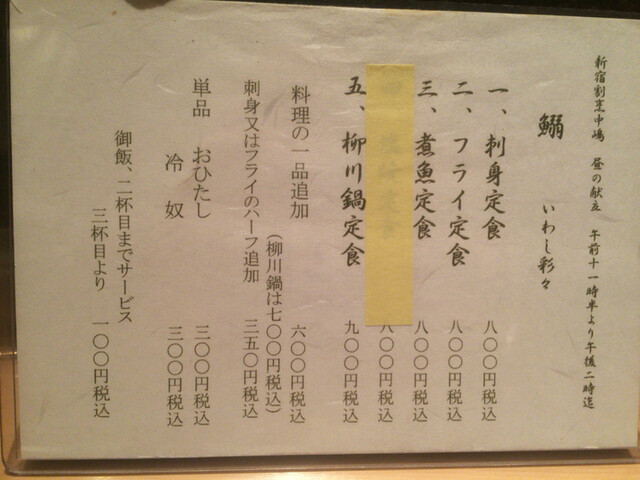 新宿割烹中嶋 昼の献立 午前十一時半より午後二時迄
鰯 いわし彩々
一、刺身定食 八〇〇円税込
二、フライ定食 八〇〇円税込
三、煮魚定食 八〇〇円税込
八〇〇円税込
五、柳川鍋定食 九〇〇円税込
料理の一品追加 六〇〇円税込
(柳川鍋は七〇〇円税込)
刺身又はフライのハーフ追加 三五〇円税込
単品 おひたし 三〇〇円税込
冷奴 三〇〇円税込
御飯、二杯目までサービス
三杯目より 一〇〇円税込